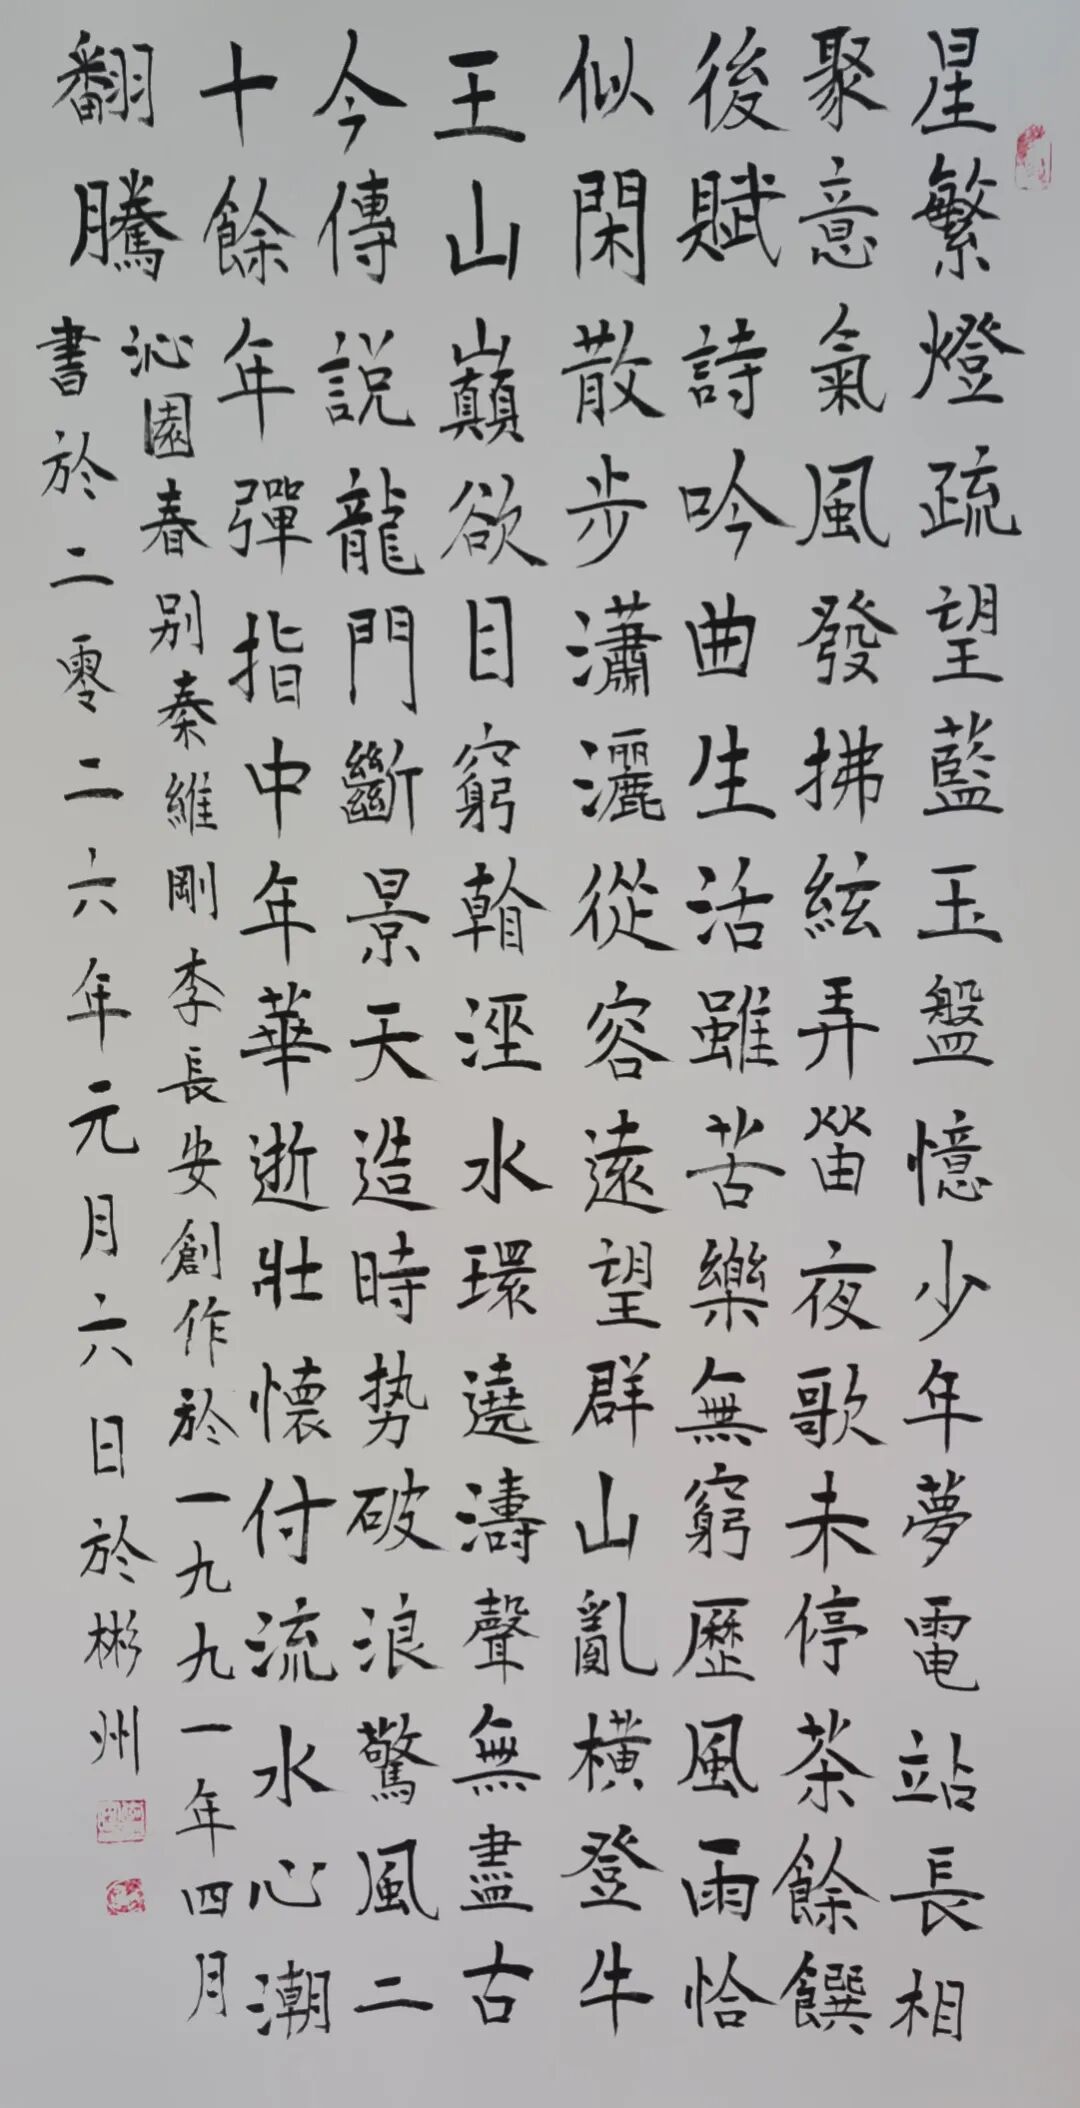 星繁燈疏望藍玉盤憶少年夢電站長相
聚意氣風發拂絃弄笛夜歌未停茶餘饌
後賦詩吟曲生活雖苦樂無窮歷風雨恰
似閑散步瀟灑從容遠望群山亂橫登牛
王山巔欲目窮翰涇水環遶濤聲無盡古
今傳說龍門斷景天造時势破浪驚風二
十餘年彈指中年華逝壯懷付流水心潮
翻騰
沁園春别秦維剛李長安創作於一九九一年四月
書於二零二六年元月六日於彬州